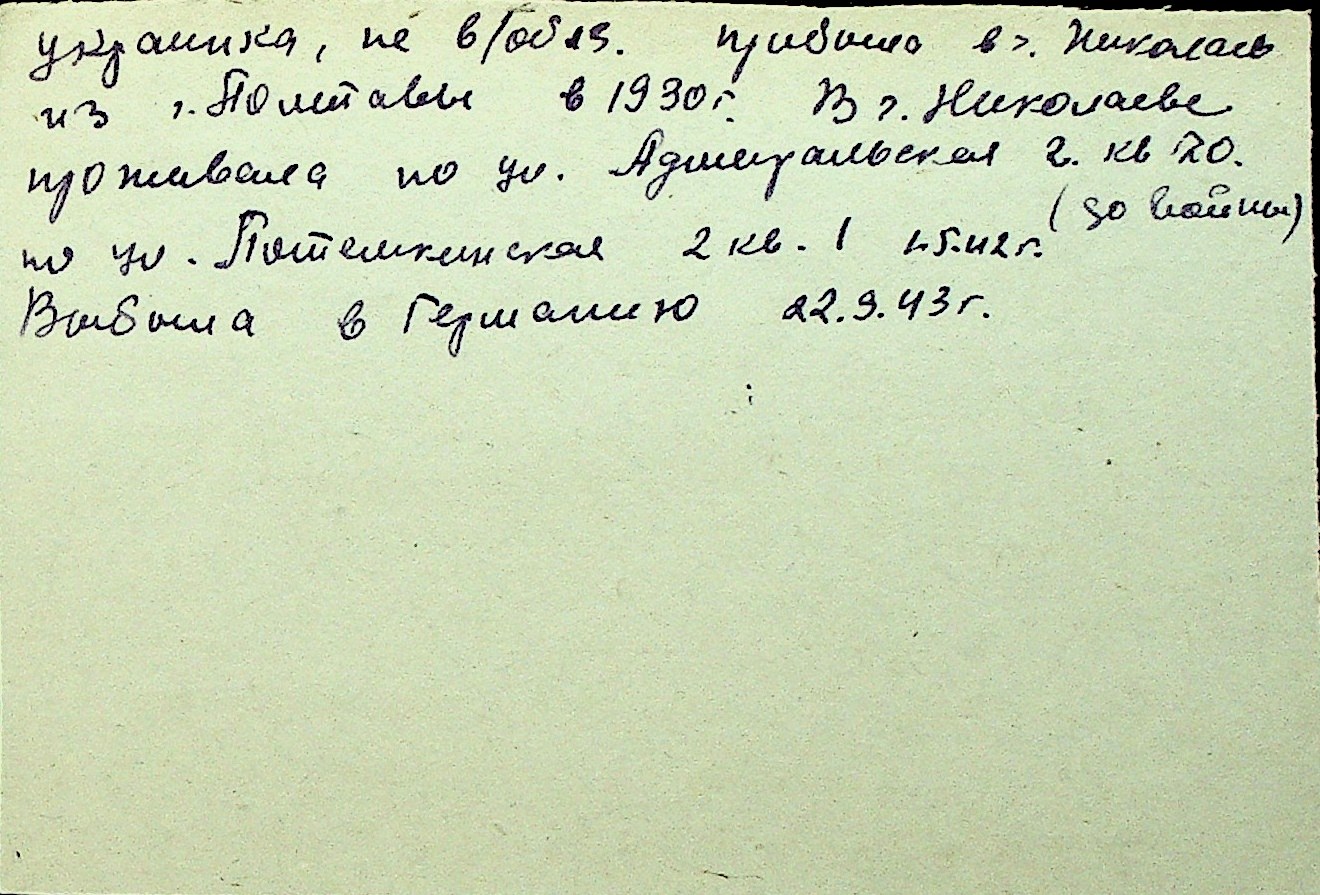 украинка, не в/обяз. прибыла в г. Николаев
из г. Полтавы в 1930 г. В г. Николаеве
проживала по ул. Адмиральская 2. кв 20.
(до войны)
по ул. Потемкинская 2 кв. 1 1.5.42 г.
Выбыла в Германию 22.9.43 г.